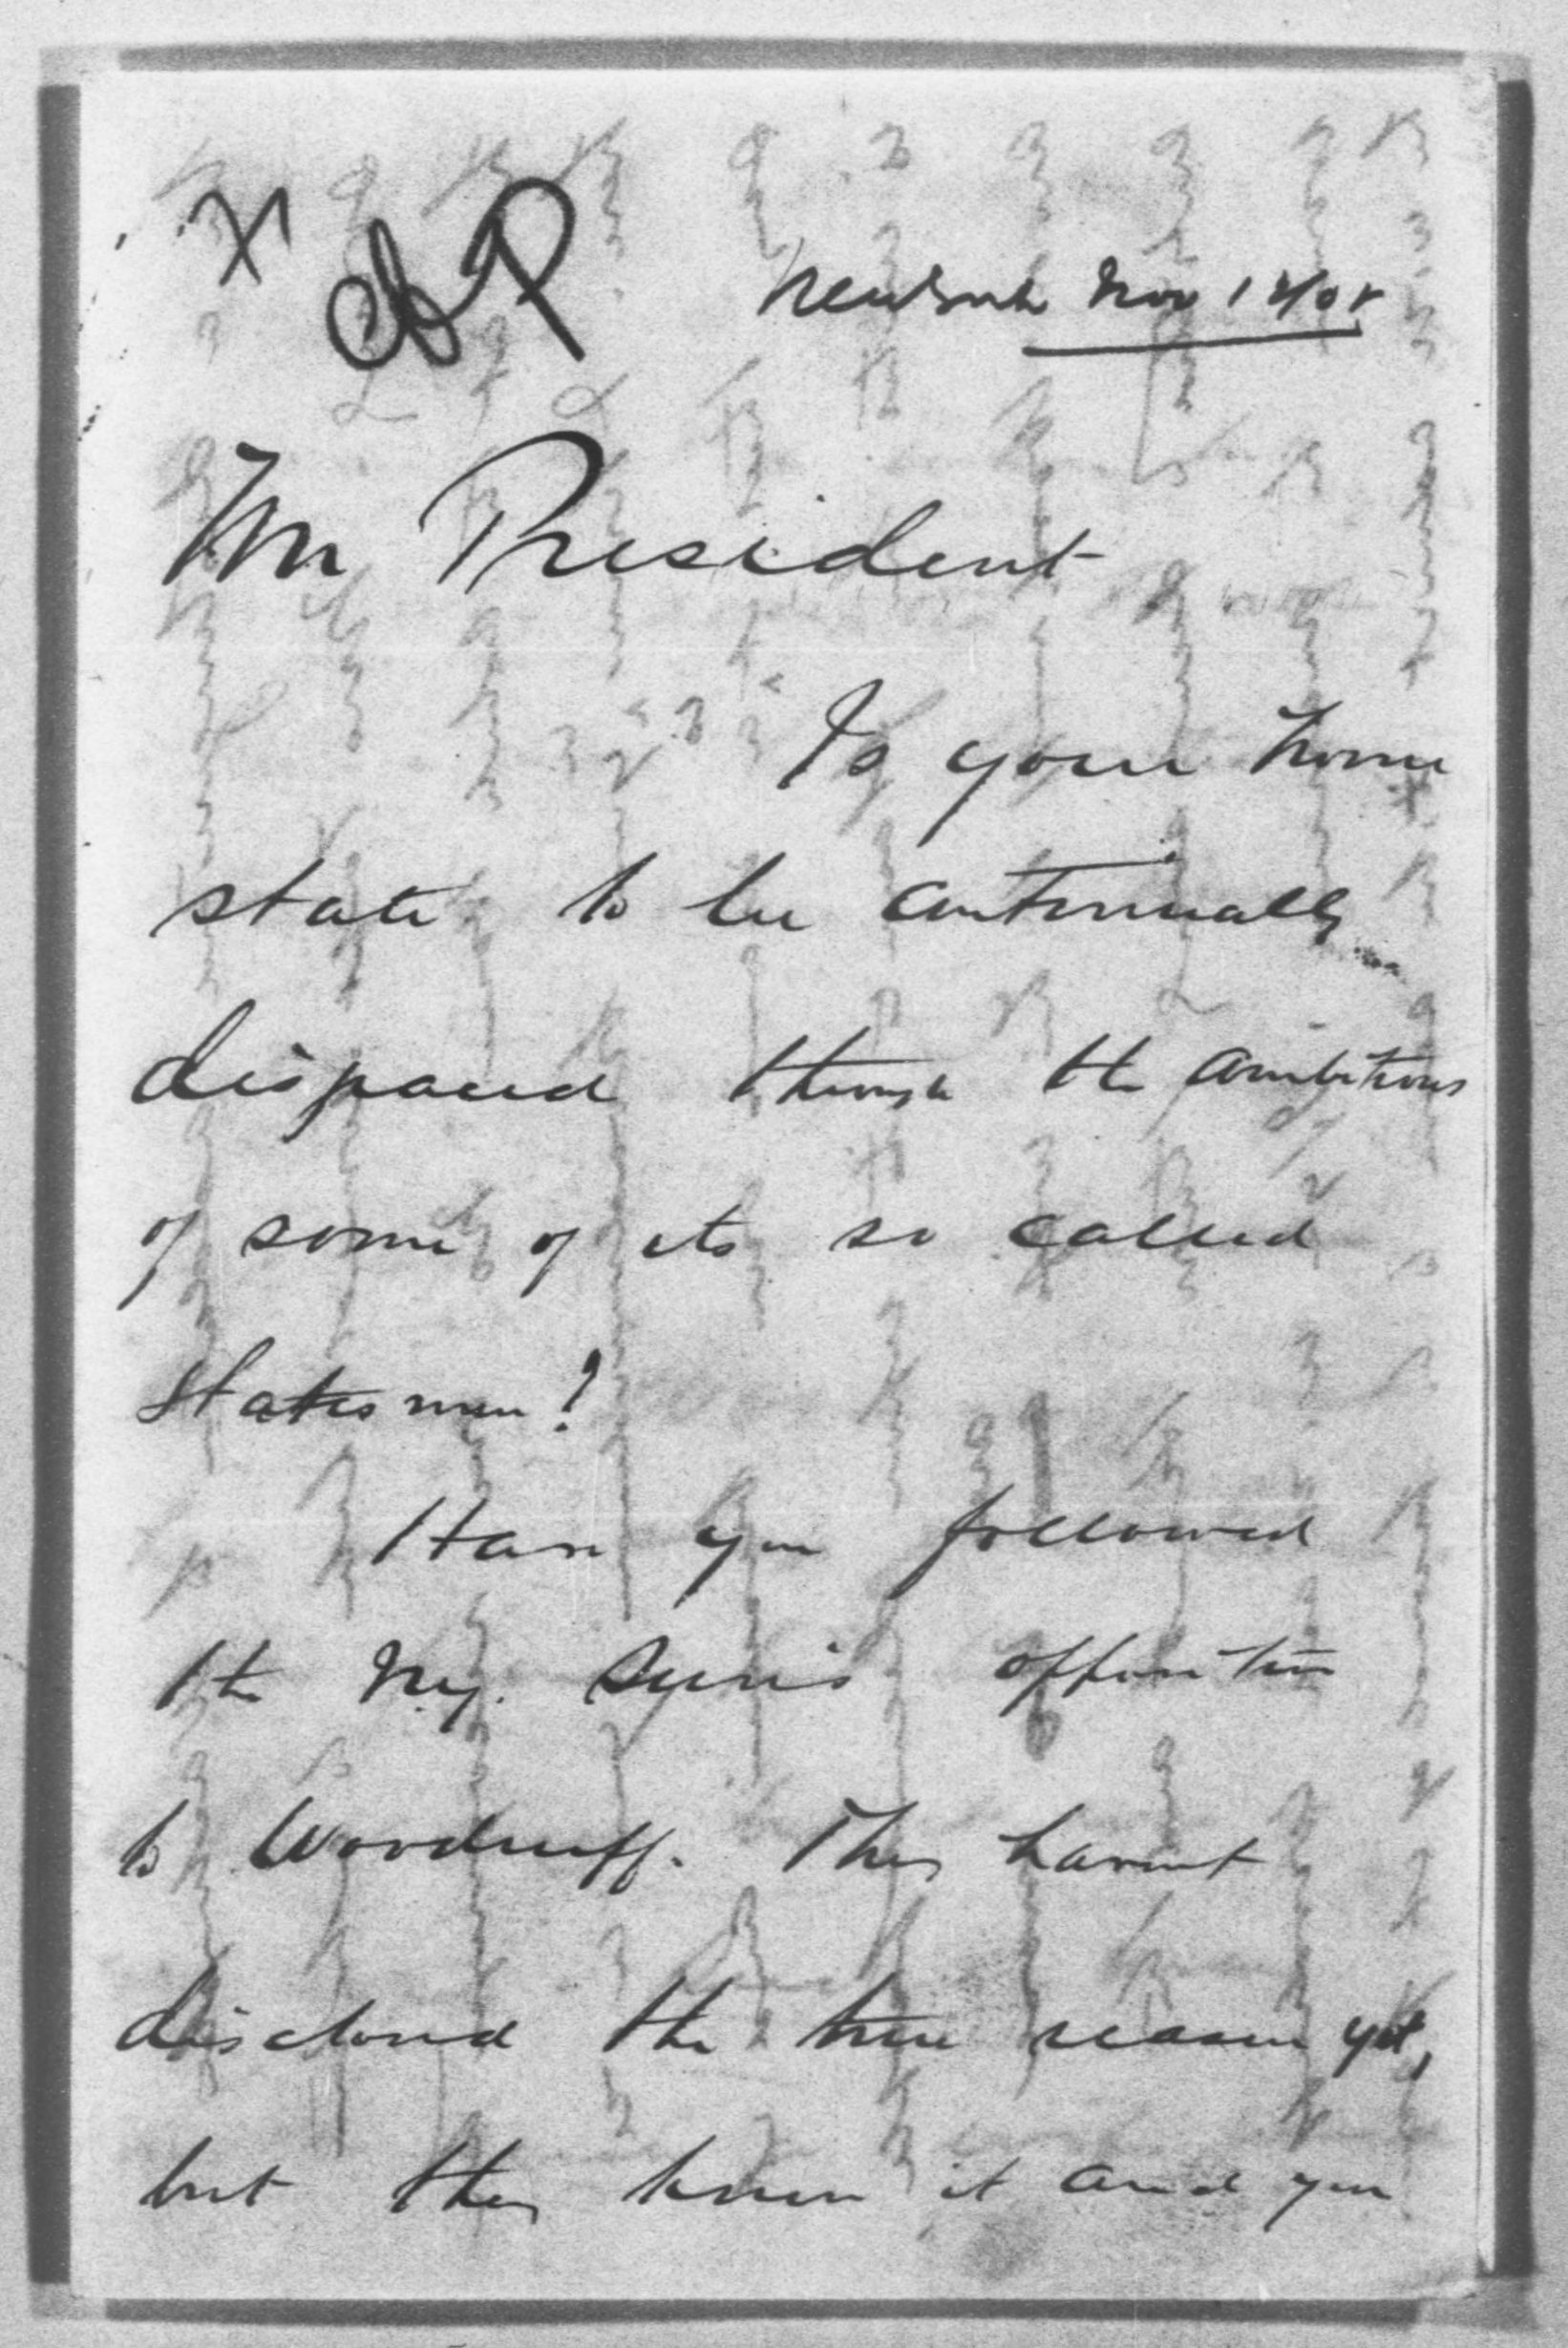 X
Nov 12/08
Mr President
Is your home
state to be continually
disgraced through the ambitions
of some of its so called
statesmen?
Have you followed
the N.Y. Sun's opposition
to Woodruff. They havent
disclosed the true reason yet,
but they know it and you